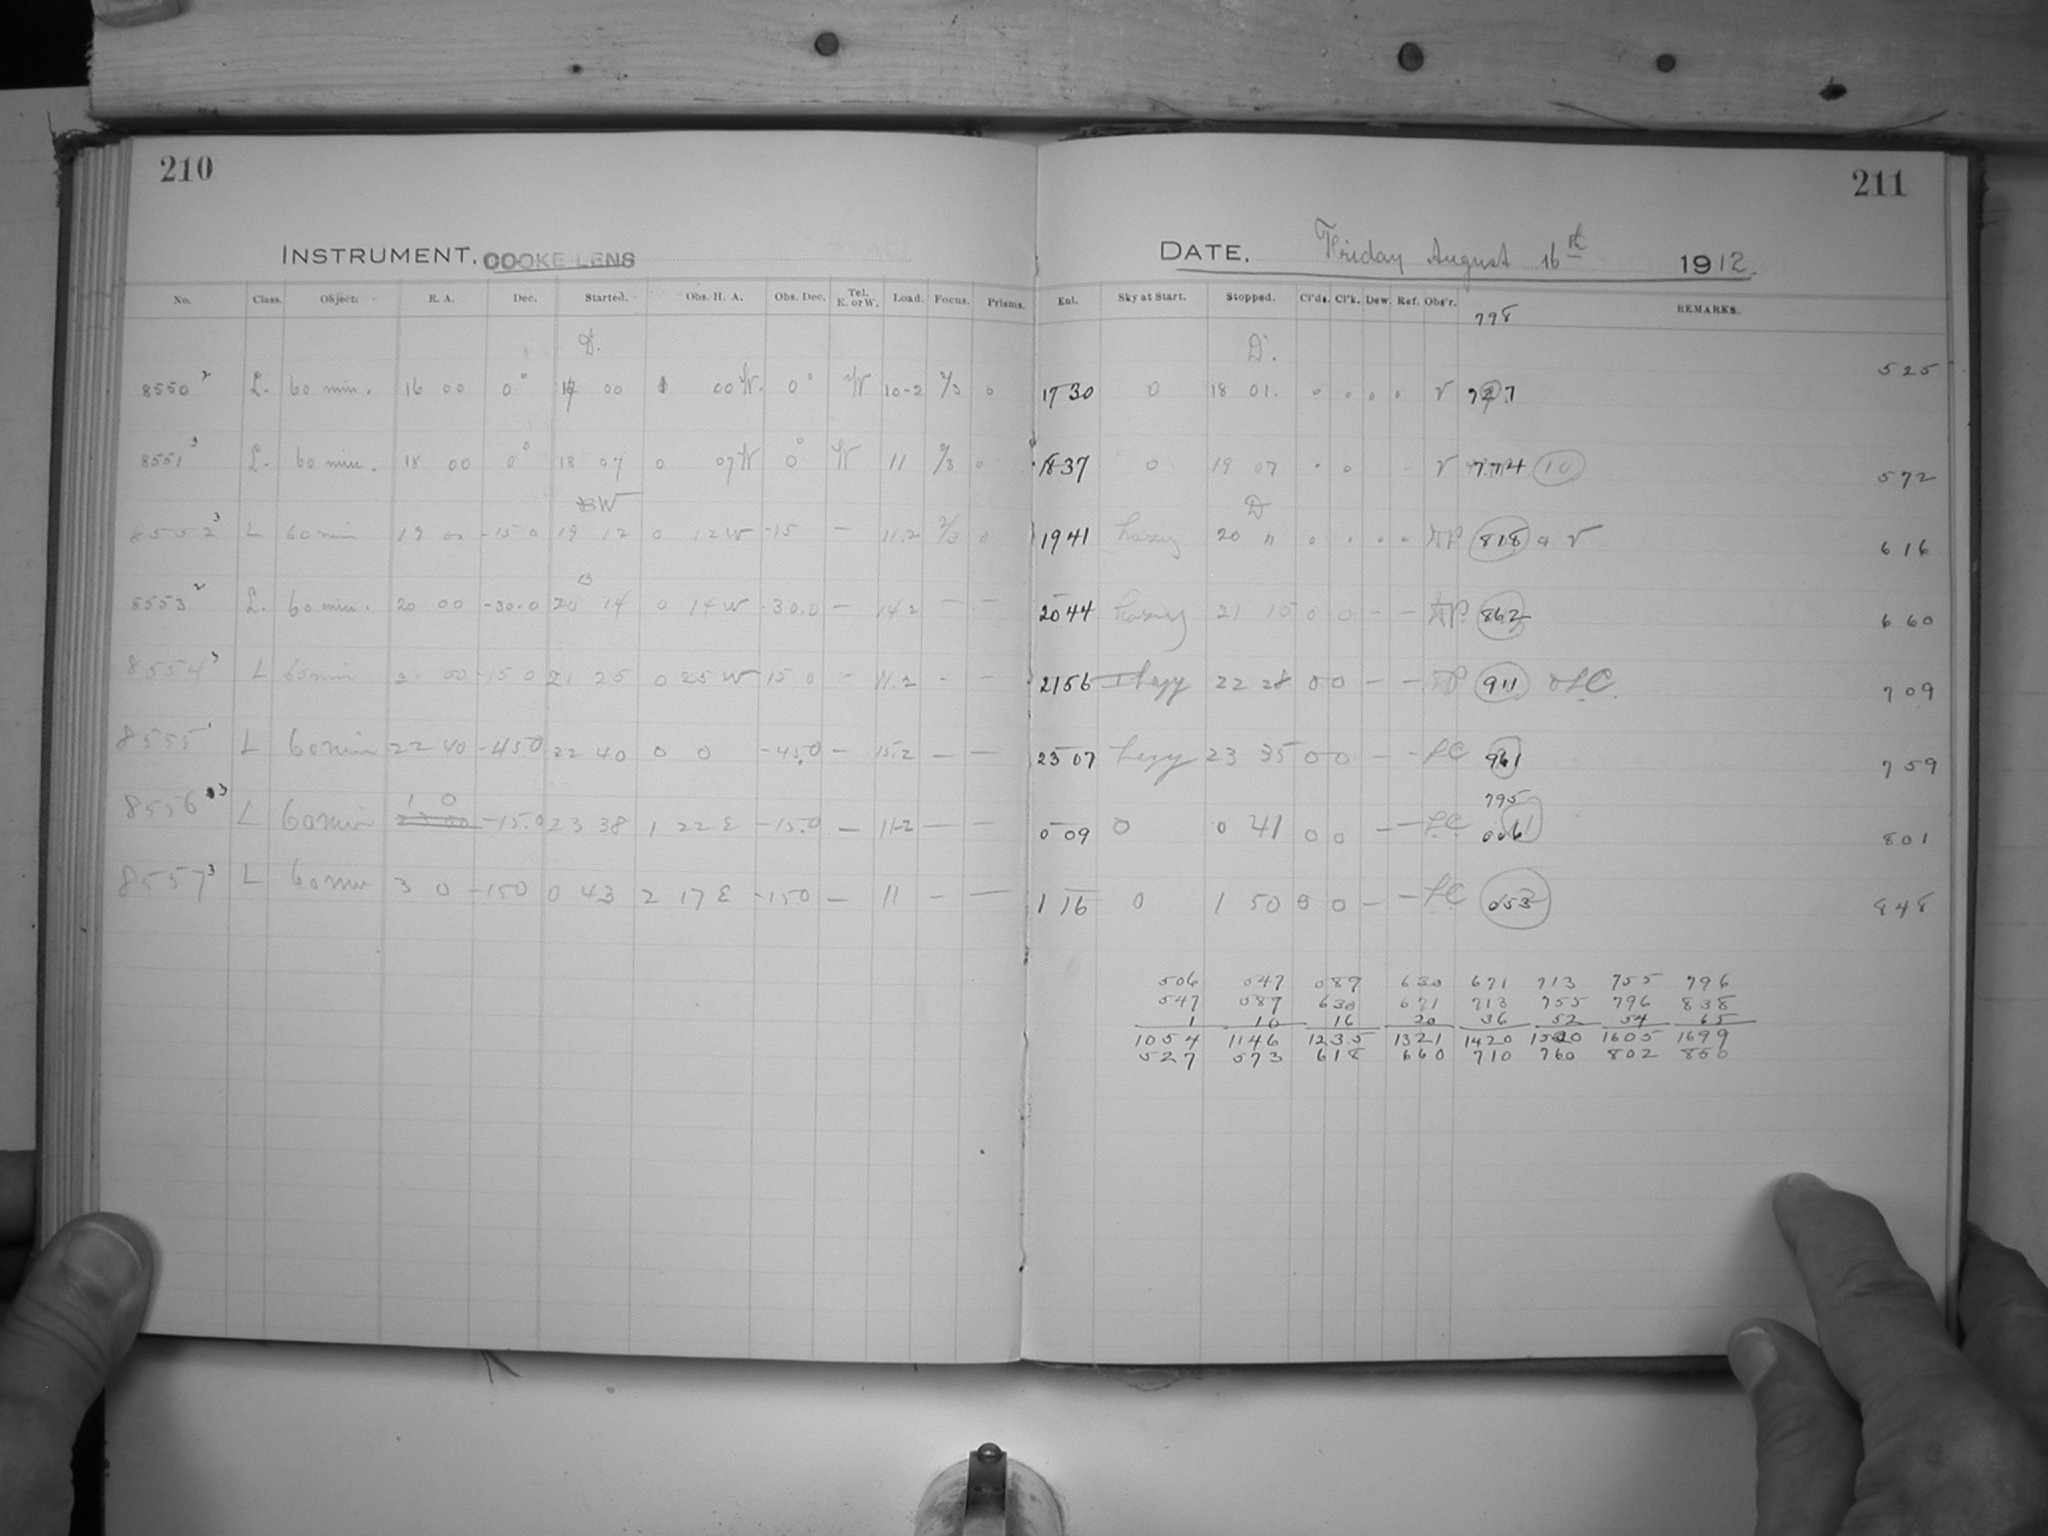 210
211
INSTRUMENT. COOKE LENS
DATE. Friday August 16th 1912
No. Class. Object. R. A. Dec. Started. Obs. H. A. Obs. Dec. Tel. E. or W. Load. Focus. Prisms. Enl. Sky at Start. Stopped. Cl'ds. Cl'k. Dew. Ref. Obs'r. REMARKS.
798
D. D.
8550 2 L. 60 min. 16 00 0° 00 00 W. 0° W 10-2 2/3 0 17 30 0 18 01. 0 0 0 0 V 525
8551 3 L. 60 min. 18 00 0° 18 07 0 07 W 0° W 11 2/3 0 18 37 0 19 07 0 0 V 774 10 572
BW D
8552 3 L 60 min 19 00 -15 0 19 12 0 12 W -15 - 11.2 2/3 0 19 41 hazy 20 11 0 0 0 - AP 818 a V 616
B
8553 2 L. 60 min. 20 00 -30.0 20 14 0 14 W -30.0 - 14.2 - - 20 44 hazy 21 15 0 0 - - AP 862 660
8554 3 L 60 min 21 00 -15 0 21 25 0 25 W 15 0 - 11.2 - - 21 56 hazy 22 28 0 0 - - AP 911 LC. 709
8555 1 L 60 min 22 40 -45 0 22 40 0 0 -45.0 - 15.2 - - 23 07 hazy 23 35 0 0 - - LC 961 759
1 0 795
8556 3 L 60 min 23 00 -15.0 23 38 1 22 E -15.0 - 11-2 - - 0 09 0 0 41 0 0 - - LC 006 801
8557 3 L 60 min 3 0 -15 0 0 43 2 17 E -15 0 - 11 - - 1 16 0 1 50 0 0 - - LC 053 848
506 547 587 630 671 713 755 796
547 587 630 671 713 755 796 838
1 10 16 20 36 52 54 65
1054 1146 1235 1321 1420 1520 1605 1699
527 573 618 660 710 760 802 850